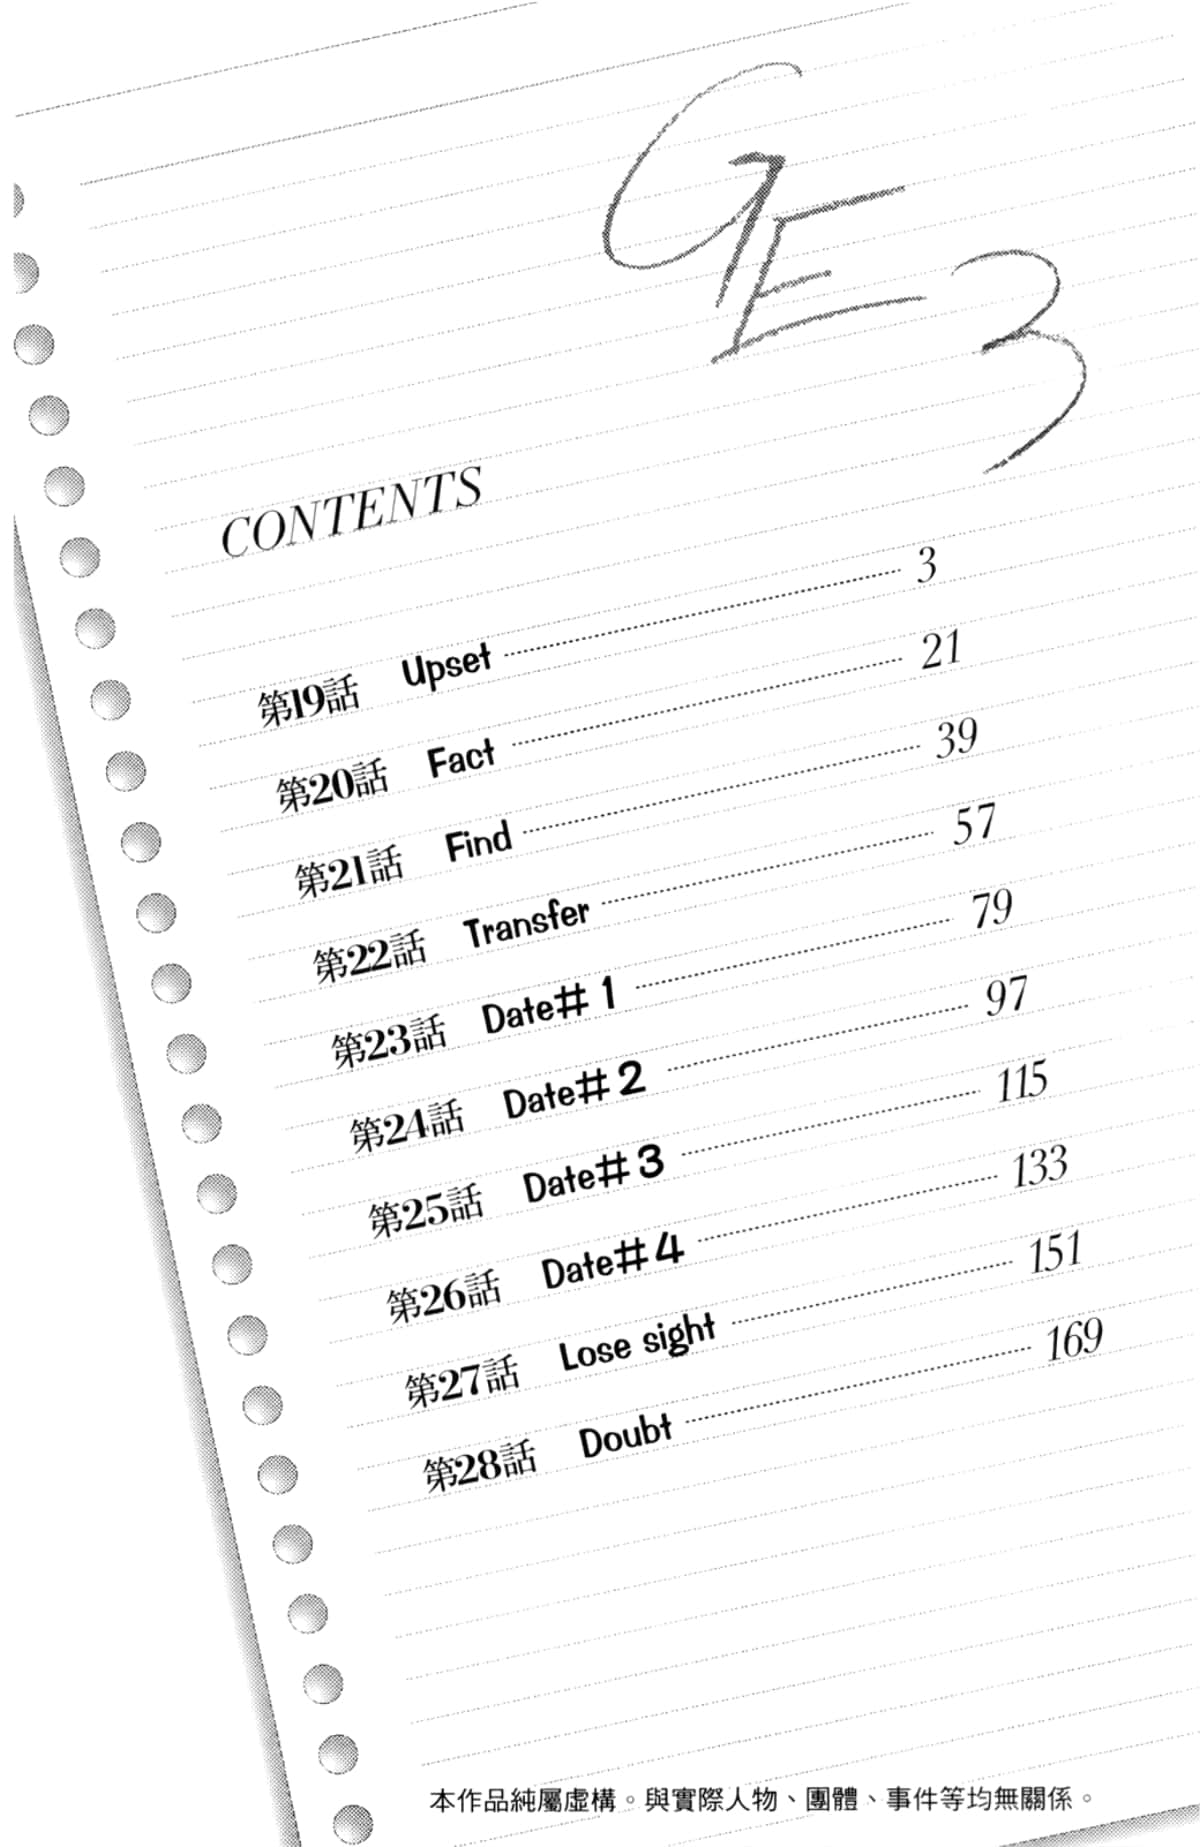 GE
3
CONTENTS
第19話 Upset 3
第20話 Fact 21
第21話 Find 39
第22話 Transfer 57
第23話 Date#1 79
第24話 Date#2 97
第25話 Date#3 115
第26話 Date#4 133
第27話 Lose sight 151
第28話 Doubt 169
本作品純屬虛構。與實際人物、團體、事件等均無關係。